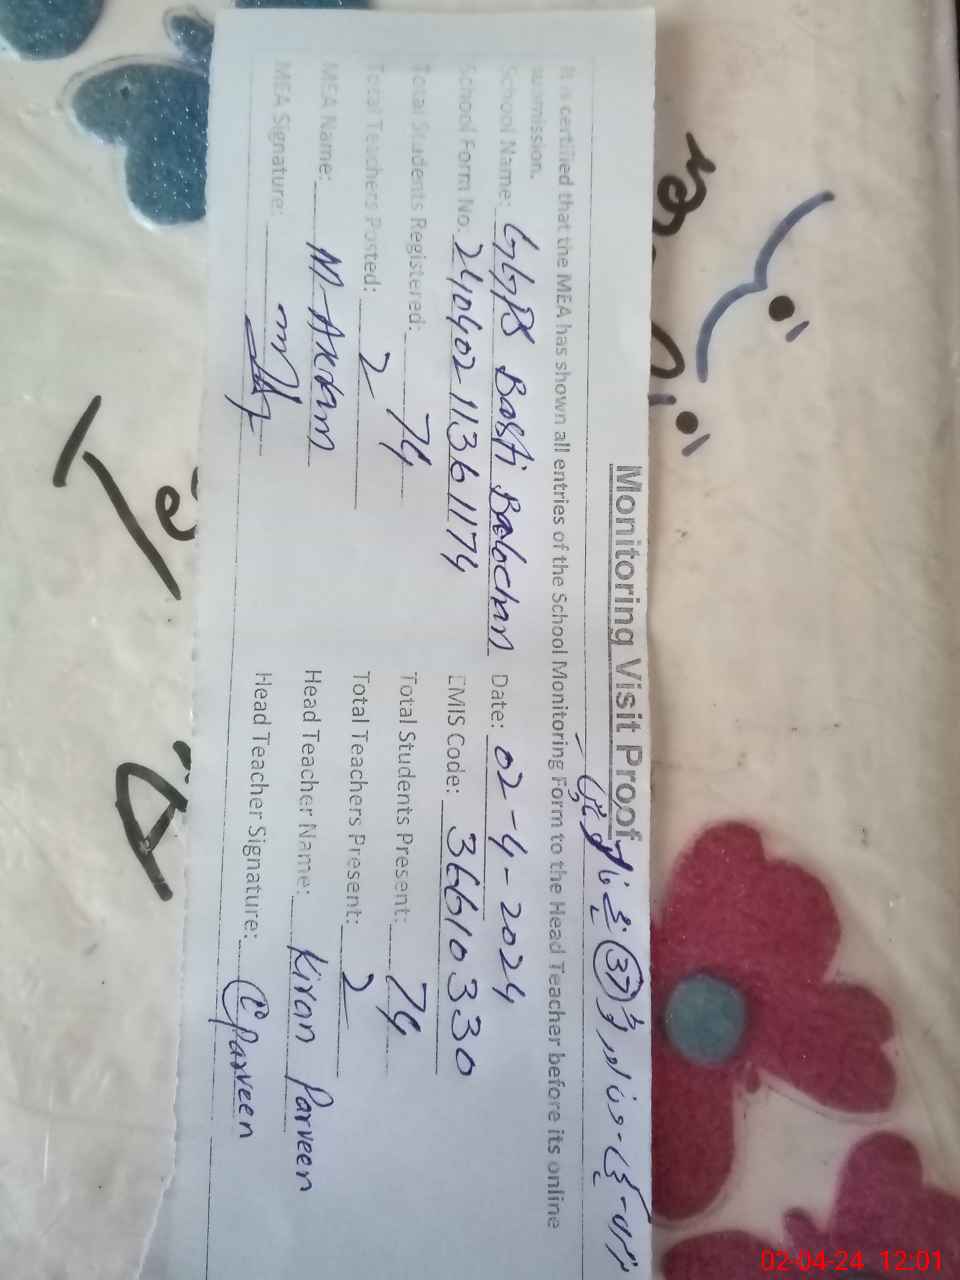 Monitoring Visit Proof
It is certified that the MEA has shown all entries of the School Monitoring Form to the Head Teacher before its online
submission.
School Name: GGPS Basti Balochan Date: 02-4-2024
School Form No. 24040211361174 EMIS Code: 36610330
Total Students Registered: 74 Total Students Present: 74
Total Teachers Posted: 2 Total Teachers Present: 2
MEA Name: M-Akram Head Teacher Name: Kiran Parveen
MEA Signature: Head Teacher Signature: Parveen
37
02-04-24 12:01